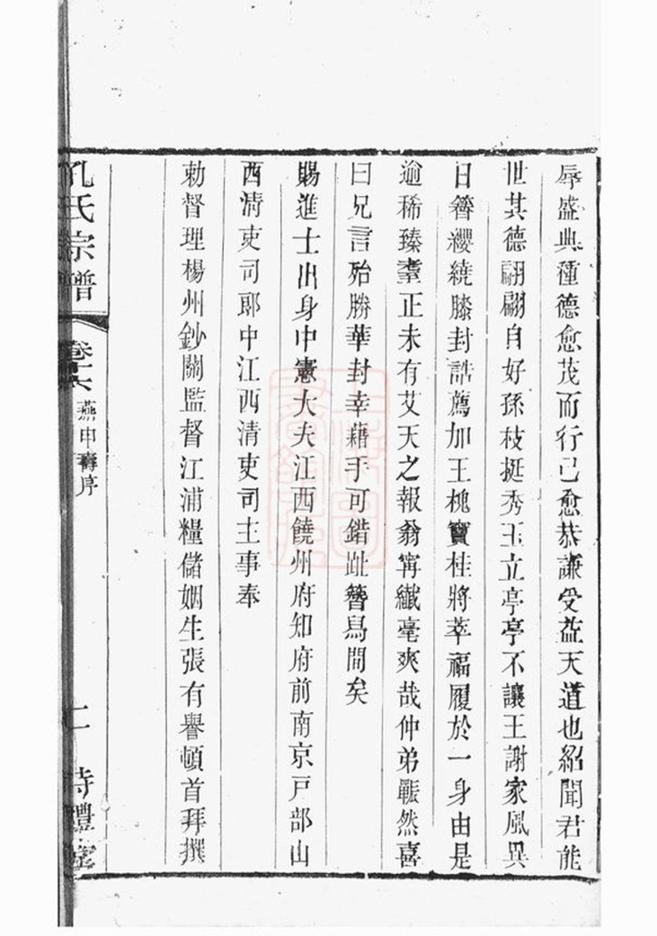 辱盛典種德愈茂而行己愈恭謙受益天道也紹聞君能
世其德翩翩自好孫枝挺秀玉立亭亭不讓王謝家風異
日簪纓繞膝封誥薦加王槐竇桂將萃福履於一身由是
逾稀臻耋正未有艾天之報翁寜纖毫爽哉仲弟囅然喜
曰兄言殆勝華封幸藉手可錯趾簪舄間矣
賜進士出身中憲大夫江西饒州府知府前南京戸部山
西清吏司郎中江西清吏司主事奉
勅督理楊州鈔關監督江浦糧儲姻生張有譽頓首拜撰
孔氏宗譜
卷十六
燕申壽序
二
詩禮堂